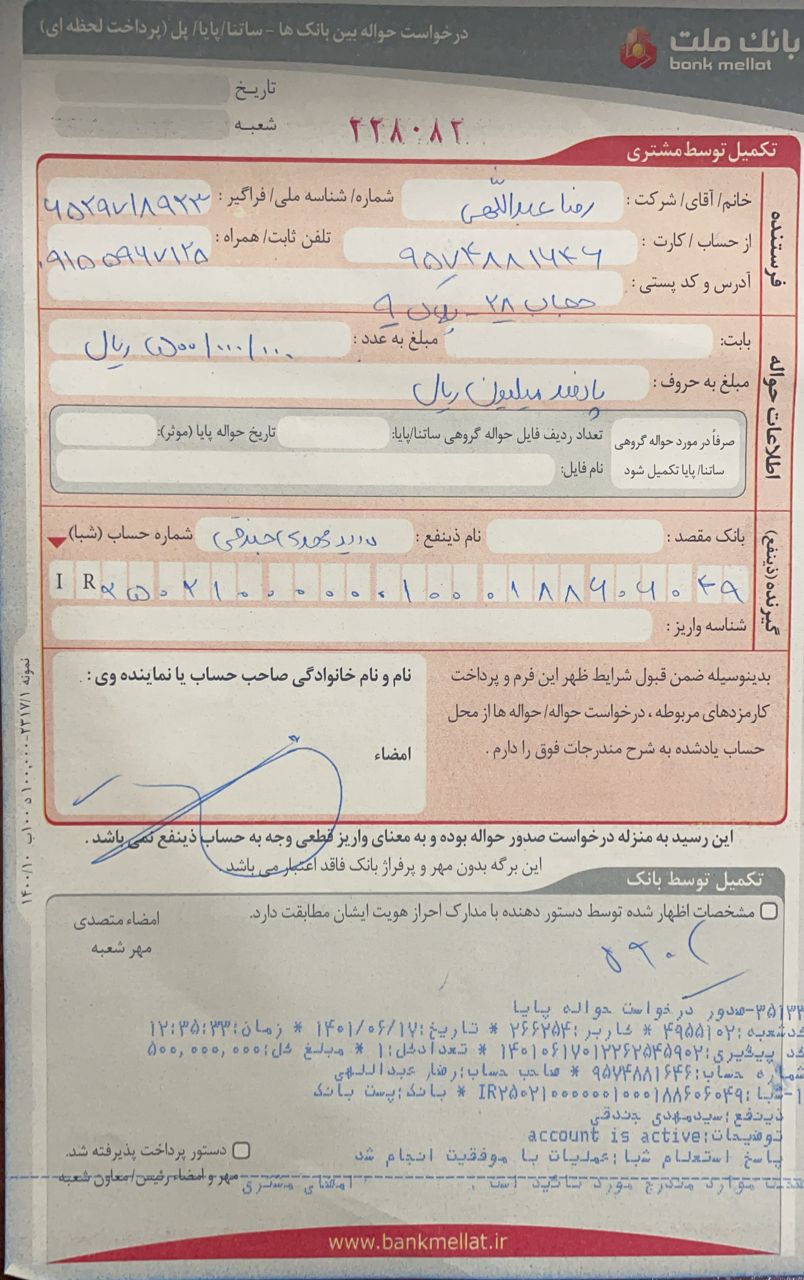 درخواست حواله بین بانک ها - ساتنا/پایا/ پل (پرداخت لحظه ای)
بانک ملت
bank mellat
تاریخ
شعبه
۲۲۸۰۸۲
تکمیل توسط مشتری
فرستنده
خانم/ آقای/ شرکت : رضا عبداللهی شماره/ شناسه ملی/ فراگیر :
از حساب / کارت : ۹۵۷۴۸۸۱۶۴۶ تلفن ثابت/ همراه : ۰۹۱۵۵۹۶۷۱۲۵
آدرس و کد پستی :
حجاب ۲۸ - پلاک ۹
اطلاعات حواله
بابت: مبلغ به عدد : ۵۰۰/۰۰۰/۰۰۰ ریال
مبلغ به حروف : پانصد میلیون ریال
صرفاً در مورد حواله گروهی ساتنا/ پایا تکمیل شود
تعداد ردیف فایل حواله گروهی ساتنا/پایا: تاریخ حواله پایا (موثر):
نام فایل:
گیرنده (ذینفع)
بانک مقصد : نام ذینفع : سید مهدی جندقی شماره حساب (شبا)
IR ۲۵۰۲۱۰۰۰۰۰۰۱۰۰۰۱۸۸۶۰۶۰۴۹
شناسه واریز :
بدینوسیله ضمن قبول شرایط ظهر این فرم و پرداخت
کارمزدهای مربوطه ، درخواست حواله/ حواله ها از محل
حساب یادشده به شرح مندرجات فوق را دارم .
نام و نام خانوادگی صاحب حساب یا نماینده وی :
امضاء
این رسید به منزله درخواست صدور حواله بوده و به معنای واریز قطعی وجه به حساب ذینفع نمی باشد .
این برگه بدون مهر و پرفراژ بانک فاقد اعتبار می باشد .
نمونه ۲۳۱۷/۱-۱۰۰,۰۰۰ د ۱۰۰ب ۱۴۰۰/۱۰
تکمیل توسط بانک
مشخصات اظهار شده توسط دستور دهنده با مدارک احراز هویت ایشان مطابقت دارد.
امضاء متصدی
مهر شعبه
۳۵۱۳۳-صدور درخواست حواله پایا
کدشعبه:۴۹۵۵۱۰۲ * کاربر:۲۶۶۲۵۴ * تاریخ:۱۴۰۱/۰۶/۱۷ * زمان:۱۲:۳۵:۳۳
کد پیگیری:۱۴۰۱۰۶۱۷۰۱۲۲۶۲۵۴۵۹۰۲ * تعدادکل:۱ * مبلغ کل:۵۰۰,۰۰۰,۰۰۰
شماره حساب:۹۵۷۴۸۸۱۶۴۶ * صاحب حساب:رضا عبداللهی
۱-شبا:IR۲۵۰۲۱۰۰۰۰۰۰۱۰۰۰۱۸۸۶۰۶۰۴۹ * بانک:پست بانک
ذینفع:سیدمهدی جندقی
توضیحات:account is active
پاسخ استعلام شبا:عملیات با موفقیت انجام شد
صحت موارد مندرج مورد تائید است . امضای مشتری
دستور پرداخت پذیرفته شد.
مهر و امضاء رئیس/ معاون شعبه
www.bankmellat.ir